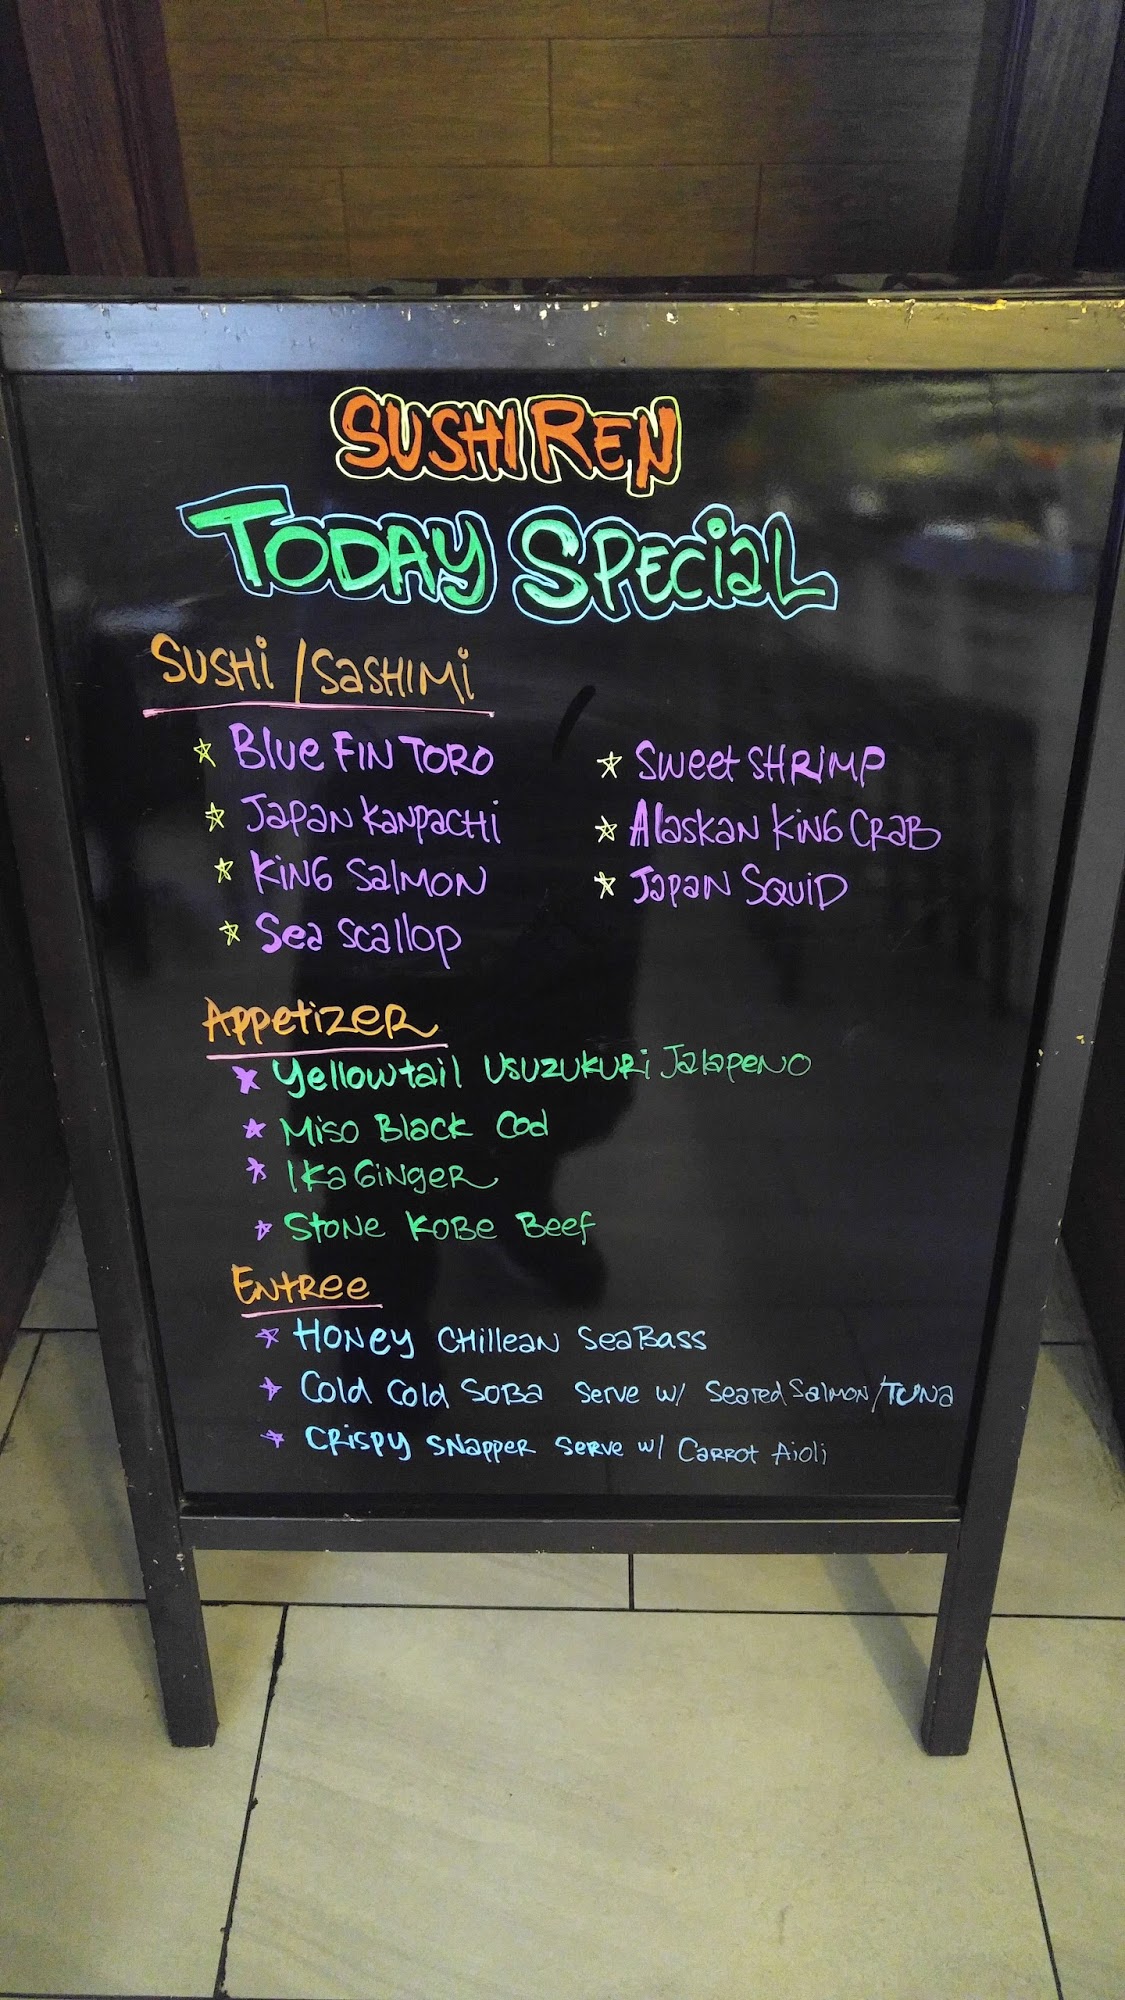 SUSHI REN
TODAY SPECIAL
SUSHI / SASHIMI
Blue FIN TORO
JAPAN KANPACHI
KING SALMON
Sea Scallop
Sweet SHRIMP
Alaskan KING CRAB
JAPAN SQUID
Appetizer
Yellowtail USUZUKURI Jalapeno
Miso Black Cod
Ika Ginger
Stone Kobe Beef
Entree
Honey CHILLEAN Sea Bass
Cold Cold SOBA Serve w/ Seared Salmon/TUNA
CRISPY SNAPPER SERVE w/ CARROT Aioli